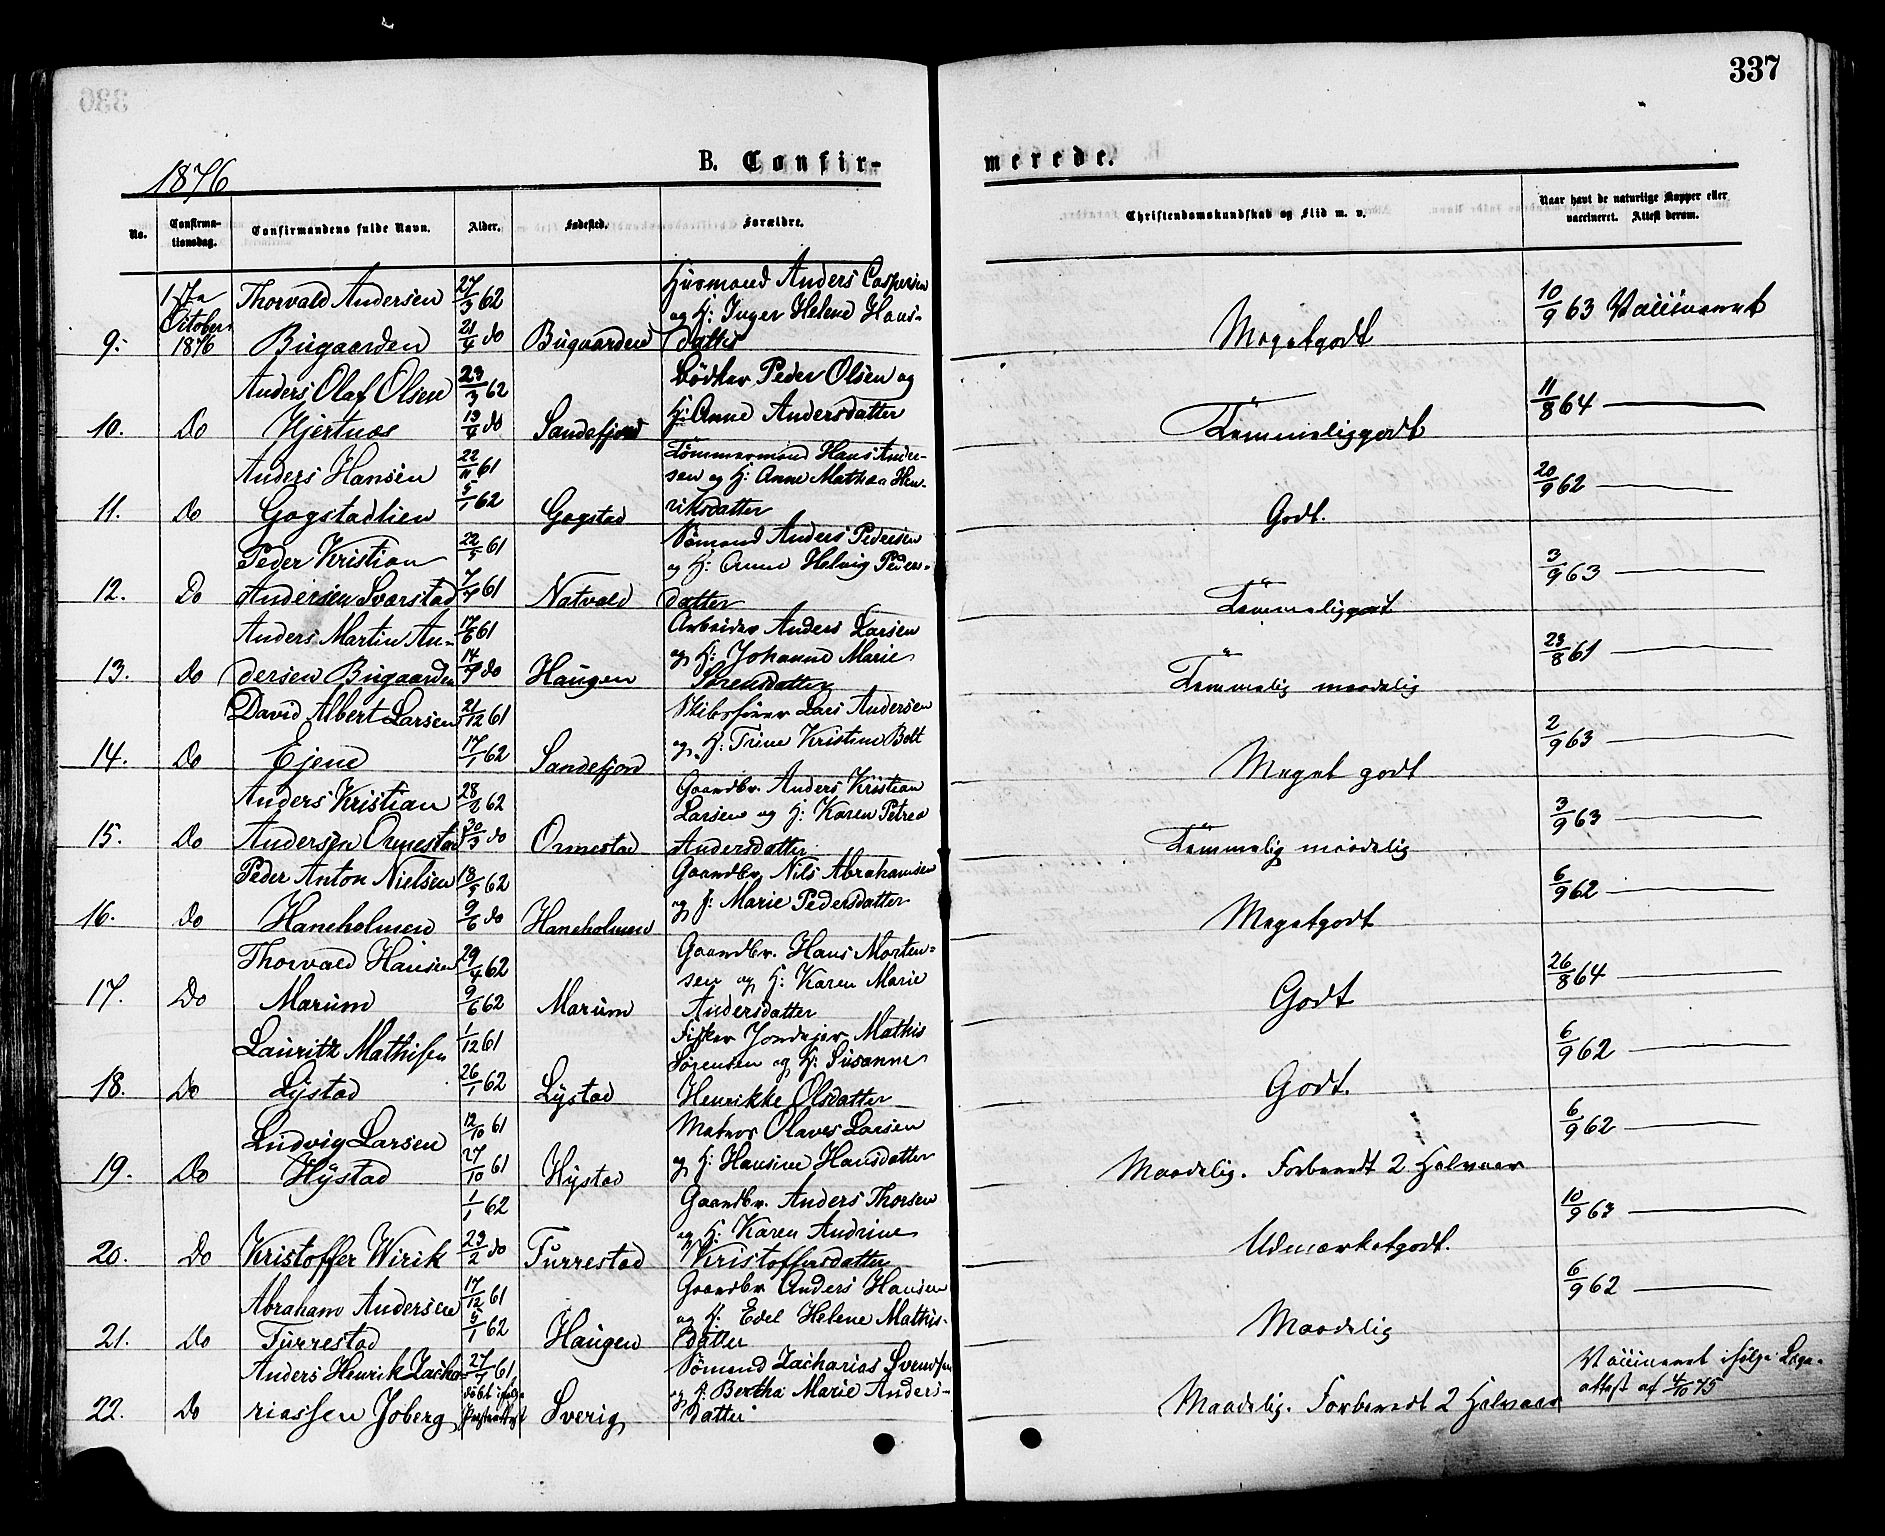 337
1876
B. Confir-
merede.
No.
Confirma-
tionsdag.
Confirmandens fulde Navn.
Alder.
Fødested.
Forældre.
Christendomskundskab og Flid m. v.
Naar havt de naturlige Kopper eller
vaccineret. Attest derom.
Thorvald Andersen 27/3 62 Husmand Anders Caspersen
October og H: Inger Helene Hans- 10/9 63 Vaccineret
9. 1876 Bugaarden 21/4 do Bugaarden datter Meget godt
Anders Olaf Olsen 23/3 62 Bødker Peder Olsen og
10. Do Hjertnæs 19/4 do Sandefjord H: Anne Andersdatter Temmelig godt 11/8 64
Anders Hansen 22/11 61 Tømmermand Hans Ander-
sen og H: Anne Mathea Hen-
11. Do Gogstadlien 5/1 62 Gogstad riksdatter Godt. 20/9 62
Peder Kristian 22/5 61 Sømand Anders Pedersen
og H: Anne Helvig Peders-
12. Do Andersen Svarstad 7/7 61 Natvald datter Temmelig godt 3/9 63
Anders Martin An- 17/6 61 Arbeider Anders Larsen
og H: Johanne Marie
13. Do dersen Bugaarden 14/7 do Haugen Sørensdatter Temmelig maadelig 23/8 61
David Albert Larsen 21/12 61 Skibsfører Lars Andersen
14. Do Ejene 17/1 62 Sandefjord og H: Trine Kristine Bolt Meget godt 2/9 63
Anders Kristian 28/2 62 Gaardbr. Anders Kristian
Larsen og H: Karen Petrea
15. Do Andersen Ormestad 30/3 do Ormestad Andersdatter Temmelig maadelig 3/9 63
Peder Anton Nielsen 18/5 62 Gaardbr. Nils Abrahamsen
16. Do Haneholmen 9/6 do Haneholmen og H: Marie Pedersdatter Meget godt 6/9 62
Thorvald Hansen 29/4 62 Gaardbr. Hans Morten-
sen og H: Karen Marie
17. Do Marum 9/6 62 Marum Andersdatter Godt 26/8 64
Lauritz Mathisen 1/12 61 Fisker Jordejer Mathis
Sørensen og H: Susanne
18. Do Lystad 26/1 62 Lystad Henrikke Olsdatter Godt. 6/9 62
Ludvig Larsen 12/10 61 Matros Olaves Larsen
19. Do Hystad 27/10 61 Hystad og H: Hansine Hansdatter Maadelig. Forberedt 2 Halvaar 6/9 62
1/1 62 Gaardbr. Anders Thorsen
og H: Karen Andrine
20. Do Kristoffer Wirik 23/2 do Furrestad Kristoffersdatter Udmærket godt. 10/9 63
Abraham Andersen 17/12 61 Gaardbr Anders Hansen
og H: Edel Helene Mathis-
21. Do Furrestad 5/1 62 Haugen datter Maadelig 6/9 62
Anders Henrik Zacha- 27/7 61 Sømand Zacharias Svendsen
døbt ifølge og H: Bertha Marie Anders- Vaccineret ifølge Læge-
22. Do riassen Joberg Præsteattest Sverig datter Maadelig. Forberedt 2 Halvaar attest af 4/10 75